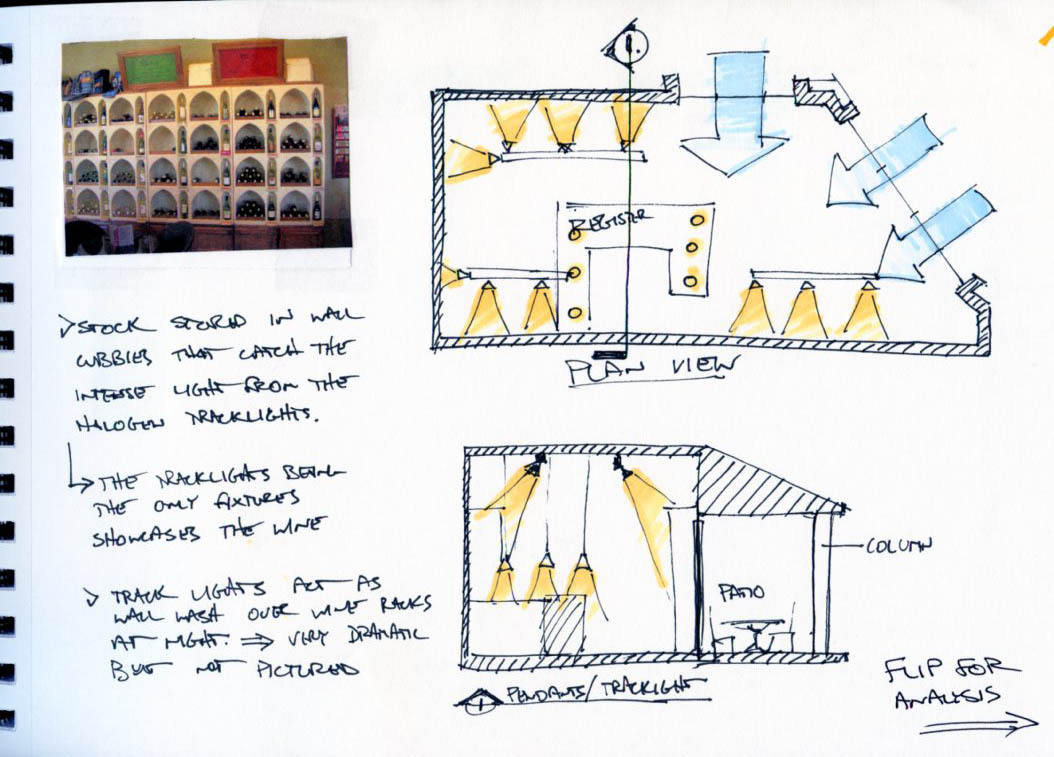 STOCK STORED IN WALL
CUBBIES THAT CATCH THE
INTENSE LIGHT FROM THE
HALOGEN TRACKLIGHTS.
THE TRACKLIGHTS BEING
THE ONLY FIXTURES
SHOWCASES THE WINE
TRACK LIGHTS ACT AS
WALL WASH OVER WINE RACKS
AT NIGHT. ⇒ VERY DRAMATIC
BUT NOT PICTURED
1.
REGISTER
PLAN VIEW
COLUMN
PATIO
1 PENDANTS/TRACKLIGHT
FLIP FOR
ANALYSIS